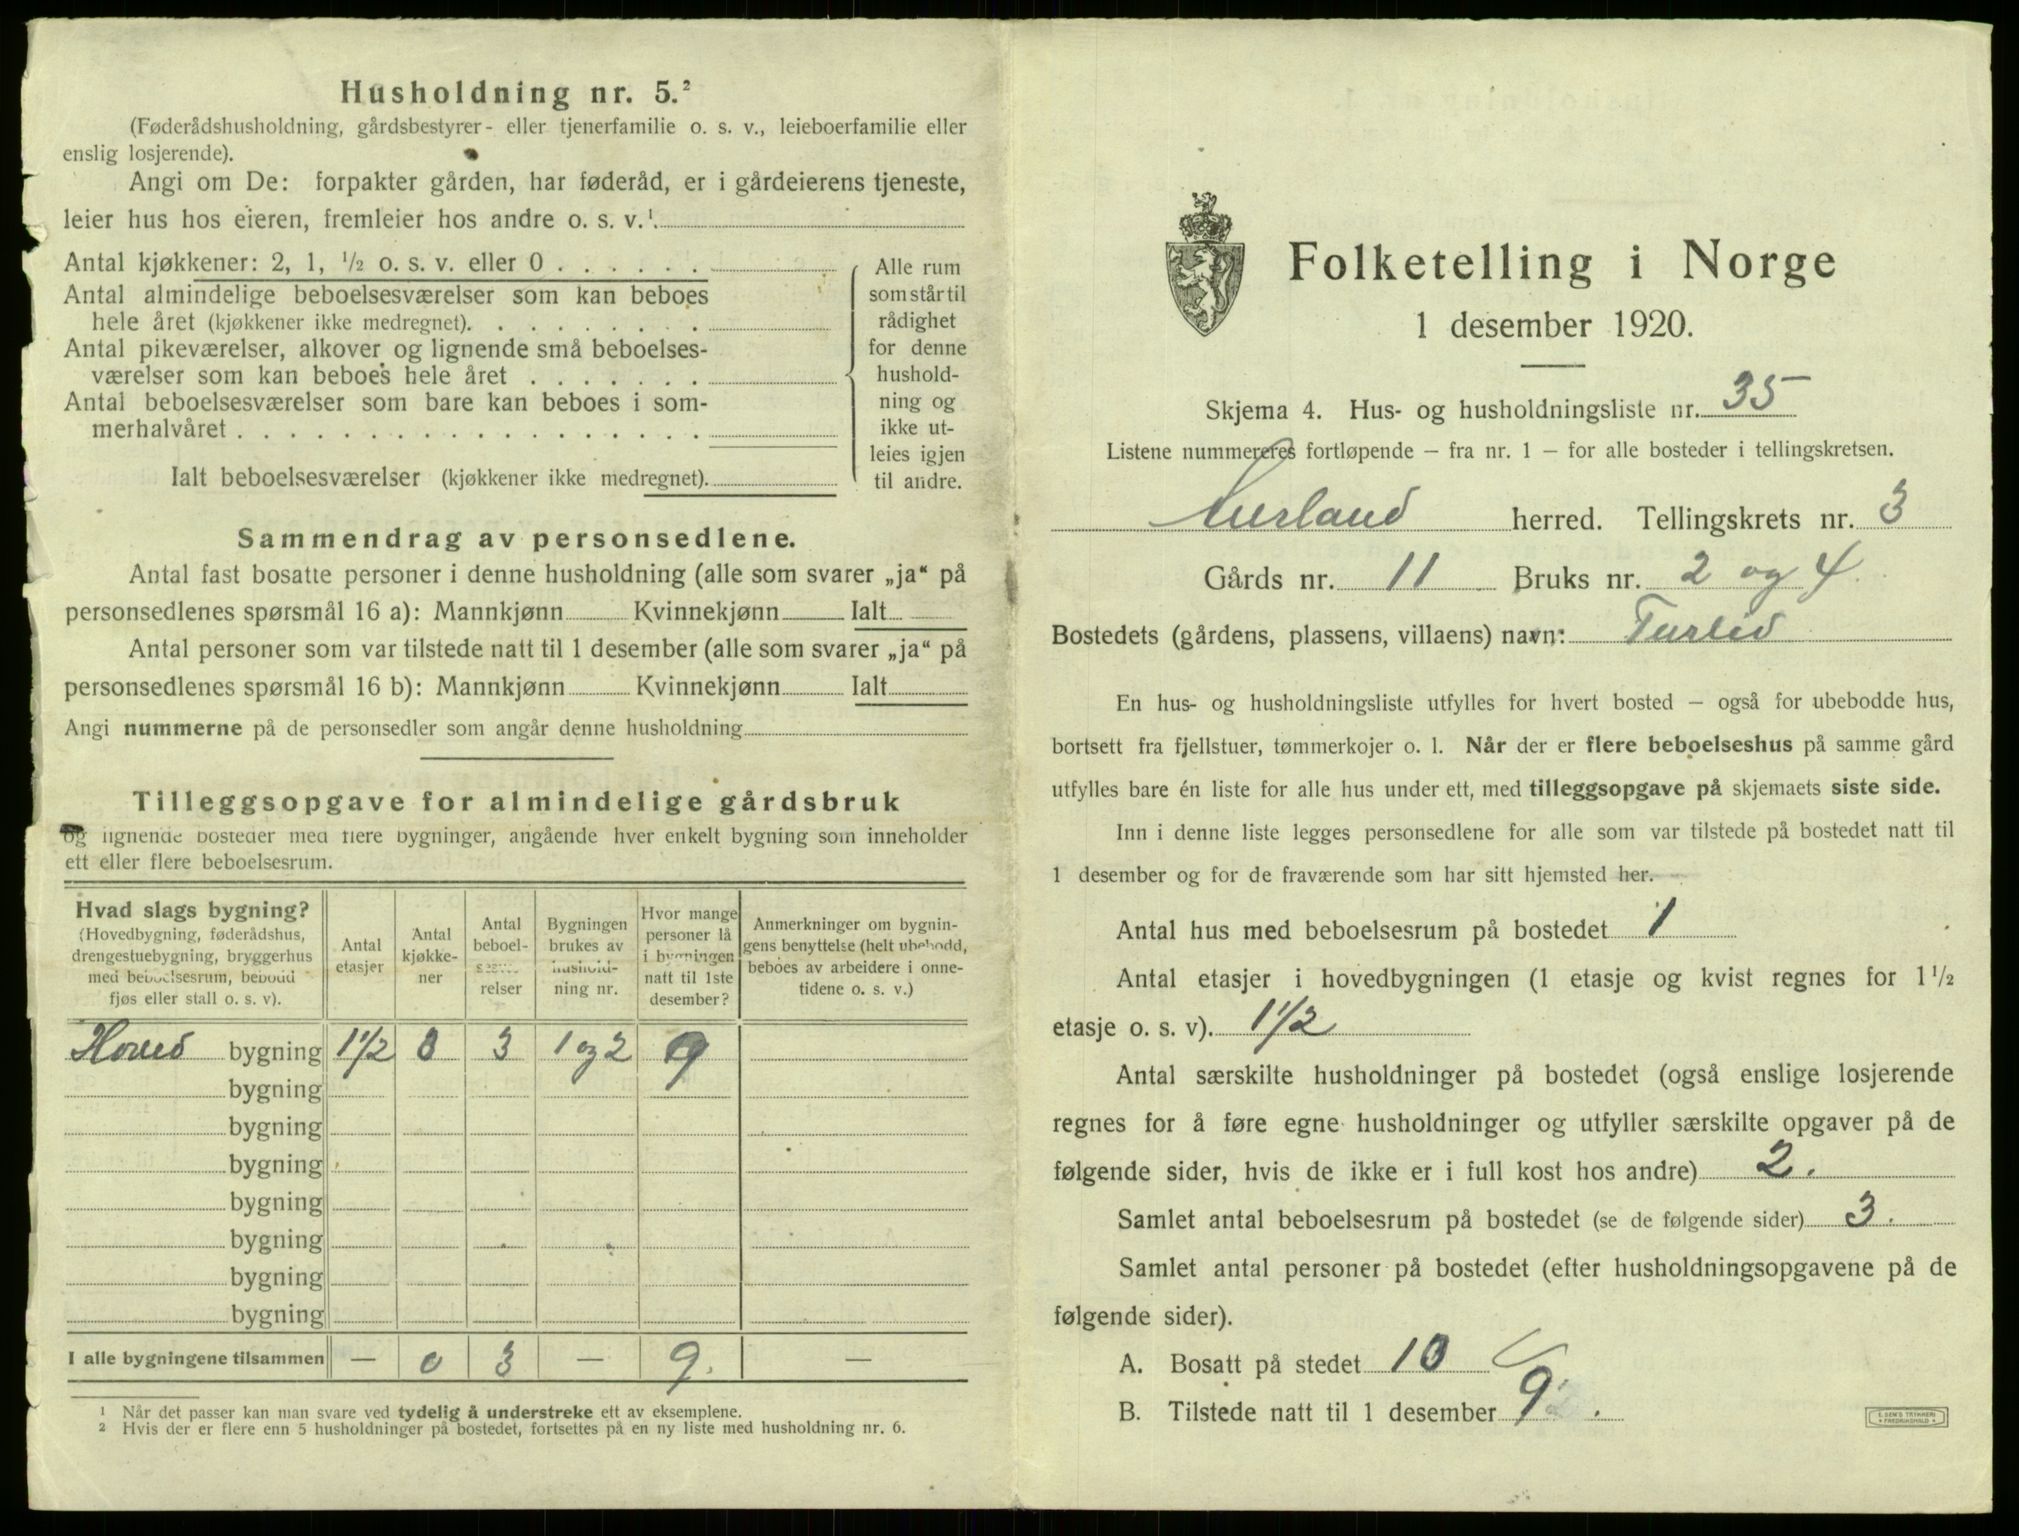 Husholdning nr. 5.²
(Føderådshusholdning, gårdsbestyrer- eller tjenerfamilie o. s. v., leieboerfamilie eller
enslig losjerende).
Angi om De: forpakter gården, har føderåd, er i gårdeierens tjeneste,
leier hus hos eieren, fremleier hos andre o. s. v.¹
Antal kjøkkener: 2, 1, ½ o. s. v. eller 0 . . . . . .
Antal almindelige beboelsesværelser som kan beboes
hele året (kjøkkener ikke medregnet). . . . . . . . .
Antal pikeværelser, alkover og lignende små beboelses-
værelser som kan beboes hele året . . . . . . .
Antal beboelsesværelser som bare kan beboes i som-
merhalvåret . . . . . . . . . . . . . . . . . .
Ialt beboelsesværelser (kjøkkener ikke medregnet).
Alle rum
som står til
rådighet
for denne
hushold-
ning og
ikke ut-
leies igjen
til andre.
Sammendrag av personsedlene.
Antal fast bosatte personer i denne husholdning (alle som svarer „ja“ på
personsedlenes spørsmål 16 a): Mannkjønn Kvinnekjønn Ialt
Antal personer som var tilstede natt til 1 desember (alle som svarer „ja“ på
personsedlenes spørsmål 16 b): Mannkjønn Kvinnekjønn Ialt
Angi nummerne på de personsedler som angår denne husholdning
Tilleggsopgave for almindelige gårdsbruk
og lignende bosteder med flere bygninger, angående hver enkelt bygning som inneholder
ett eller flere beboelsesrum.
Hvad slags bygning?
(Hovedbygning, føderådshus,
drengestuebygning, bryggerhus
med beboelsesrum, bebodd
fjøs eller stall o. s. v).
Antal
etasjer
Antal
kjøkke-
ner
Antal
beboel-
sesvæ-
relser
Bygningen
brukes av
hushold-
ning nr.
Hvor mange
personer lå
i bygningen
natt til 1ste
desember?
Anmerkninger om bygnin-
gens benyttelse (helt ubebodd,
beboes av arbeidere i onne-
tidene o. s. v.)
Hoved bygning 1½ 0 3 1 og 2 9
bygning
bygning
bygning
bygning
bygning
bygning
bygning
I alle bygningene tilsammen — 0 3 — 9. —
¹ Når det passer kan man svare ved tydelig å understreke ett av eksemplene.
² Hvis der er flere enn 5 husholdninger på bostedet, fortsettes på en ny liste med husholdning nr. 6.
Folketelling i Norge
1 desember 1920.
Skjema 4. Hus- og husholdningsliste nr. 35
Listene nummereres fortløpende – fra nr. 1 – for alle bosteder i tellingskretsen.
Aurland herred. Tellingskrets nr. 3
Gårds nr. 11 Bruks nr. 2 og 4.
Bostedets (gårdens, plassens, villaens) navn: Turlid
En hus- og husholdningsliste utfylles for hvert bosted – også for ubebodde hus,
bortsett fra fjellstuer, tømmerkojer o. l. Når der er flere beboelseshus på samme gård
utfylles bare én liste for alle hus under ett, med tilleggsopgave på skjemaets siste side.
Inn i denne liste legges personsedlene for alle som var tilstede på bostedet natt til
1 desember og for de fraværende som har sitt hjemsted her.
Antal hus med beboelsesrum på bostedet 1
Antal etasjer i hovedbygningen (1 etasje og kvist regnes for 1½
etasje o. s. v). 1½
Antal særskilte husholdninger på bostedet (også enslige losjerende
regnes for å føre egne husholdninger og utfyller særskilte opgaver på de
følgende sider, hvis de ikke er i full kost hos andre) 2.
Samlet antal beboelsesrum på bostedet (se de følgende sider) 3.
Samlet antal personer på bostedet (efter husholdningsopgavene på de
følgende sider).
A. Bosatt på stedet 10
B. Tilstede natt til 1 desember 9.
E. SEM'S TRYKKERI
FREDRIKSHALD